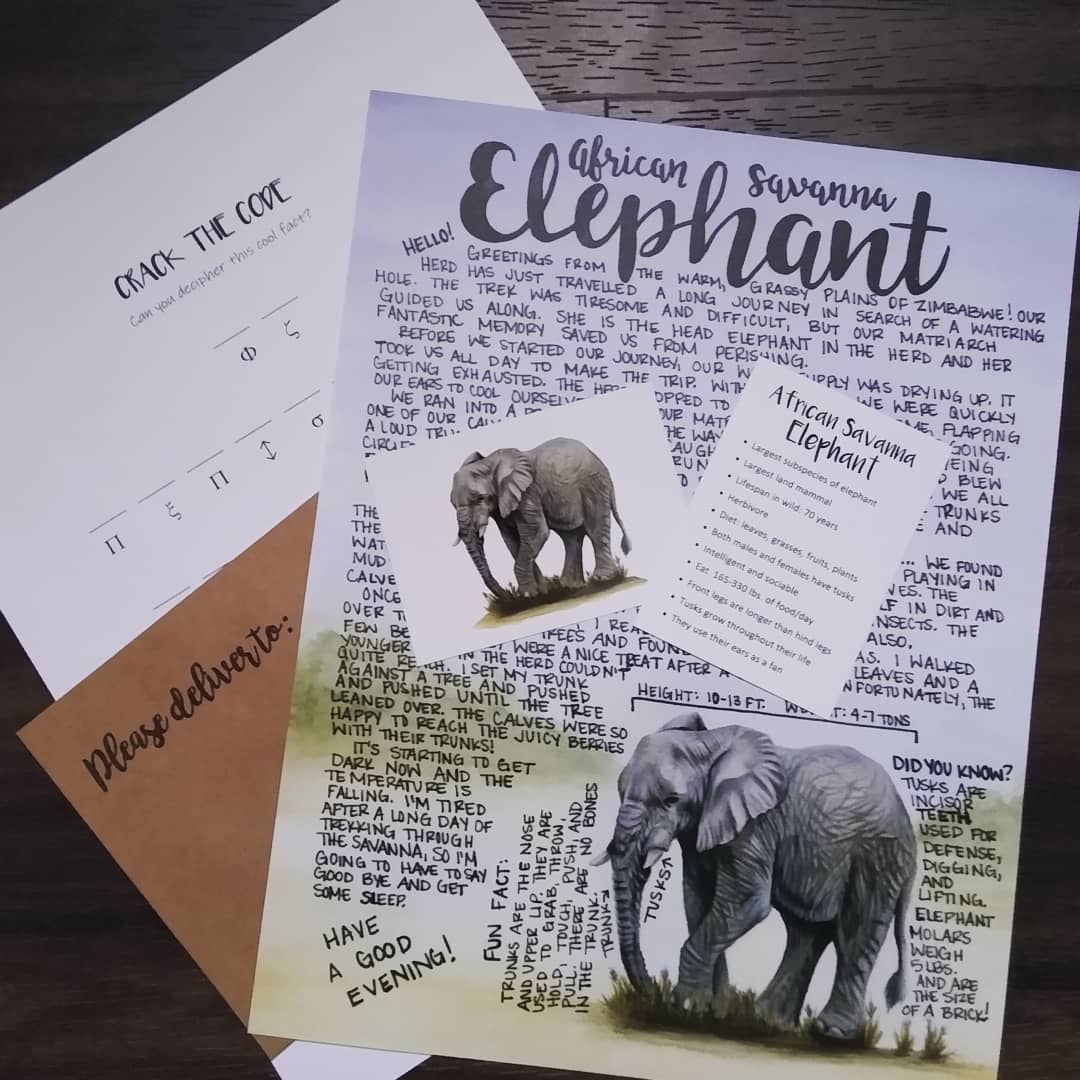 CRACK THE CODE
Can you decipher this cool fact?
Φ ζ
Π ξ Π ↕ σ
Please deliver to:
African Savanna
Elephant
HELLO!
GREETINGS FROM THE WARM, GRASSY PLAINS OF ZIMBABWE! OUR
HERD HAS JUST TRAVELLED A LONG JOURNEY IN SEARCH OF A WATERING
HOLE. THE TREK WAS TIRESOME AND DIFFICULT, BUT OUR MATRIARCH
GUIDED US ALONG. SHE IS THE HEAD ELEPHANT IN THE HERD AND HER
FANTASTIC MEMORY SAVED US FROM PERISHING.
BEFORE WE STARTED OUR JOURNEY, OUR W UPPLY WAS DRYING UP. IT
TOOK US ALL DAY TO MAKE THE TRIP. WITH WE WERE QUICKLY
GETTING EXHAUSTED. THE HE OPPED TO FLAPPING
OUR EARS TO COOL OURSELVE GOING.
WE RAN INTO A OUR MAT EING
ONE OF OUR CAL THE WAY BLEW
A LOUD TRU AUGH WE ALL
CIRCLE RUN TRUNKS
AND
THE
THE WE FOUND
WAT PLAYING IN
MUD VES. THE
CALVE F IN DIRT AND
ONCE NSECTS. THE
OVER T I REA ALSO.
FEW BE TREES AND FOUN AS. I WALKED
YOUNGER WERE A NICE TREAT AFTER A LEAVES AND A
QUITE REACH. I SET MY TRUNK IN THE HERD COULDN'T NFORTUNATELY, THE
AGAINST A TREE AND PUSHED
AND PUSHED UNTIL THE TREE
LEANED OVER. THE CALVES WERE SO
HAPPY TO REACH THE JUICY BERRIES
WITH THEIR TRUNKS!
IT'S STARTING TO GET
DARK NOW AND THE
TEMPERATURE IS
FALLING. I'M TIRED
AFTER A LONG DAY OF
TREKKING THROUGH
THE SAVANNA, SO I'M
GOING TO HAVE TO SAY
GOOD BYE AND GET
SOME SLEEP.
HAVE
A GOOD
EVENING!
African Savanna
Elephant
• Largest subspecies of elephant
• Largest land mammal
• Lifespan in wild: 70 years
• Herbivore
• Diet: leaves, grasses, fruits, plants
• Both males and females have tusks
• Intelligent and sociable
• Eat 165-330 lbs. of food/day
• Front legs are longer than hind legs
• Tusks grow throughout their life
• They use their ears as a fan
HEIGHT: 10-13 FT. W T: 4-7 TONS
FUN FACT:
TRUNKS ARE THE NOSE
AND UPPER LIP. THEY ARE
USED TO GRAB, THROW,
HOLD, TOUCH, PUSH, AND
PULL. THERE ARE NO BONES
IN THE TRUNK.
TRUNK
TUSKS
DID YOU KNOW?
TUSKS ARE
INCISOR
TEETH
USED FOR
DEFENSE,
DIGGING,
AND
LIFTING.
ELEPHANT
MOLARS
WEIGH
5 LBS.
AND ARE
THE SIZE
OF A BRICK!